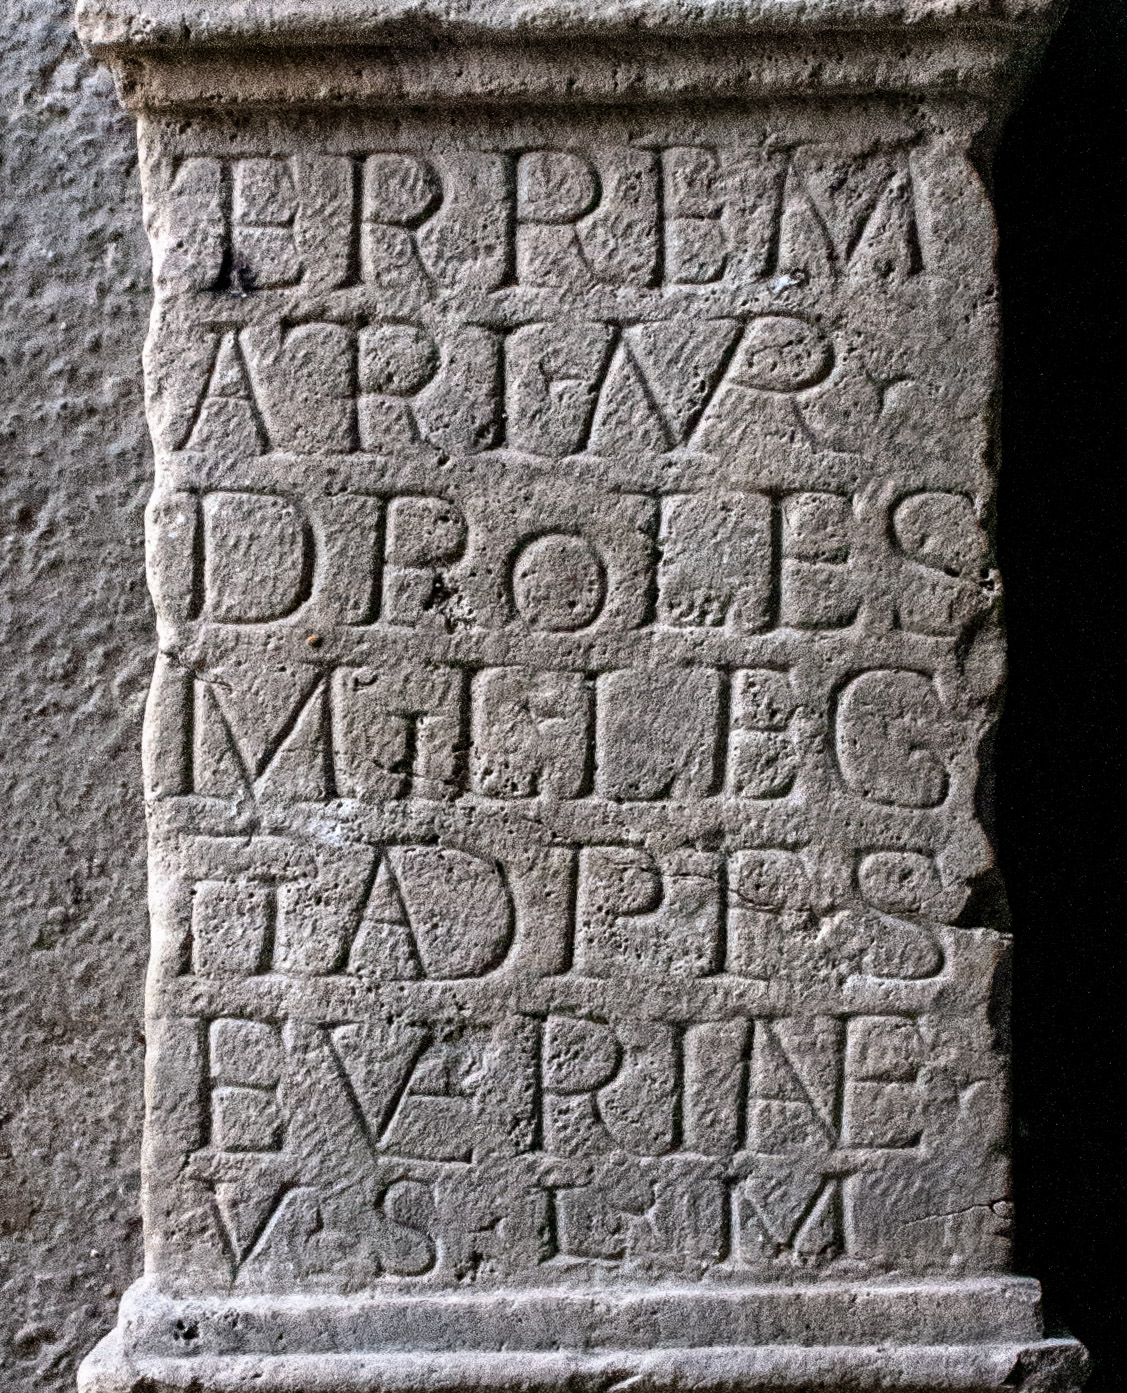 TERRE M
ATRI AVR
DROLES
MIL LEG
II AD P F S
EVERIANE
V S L M